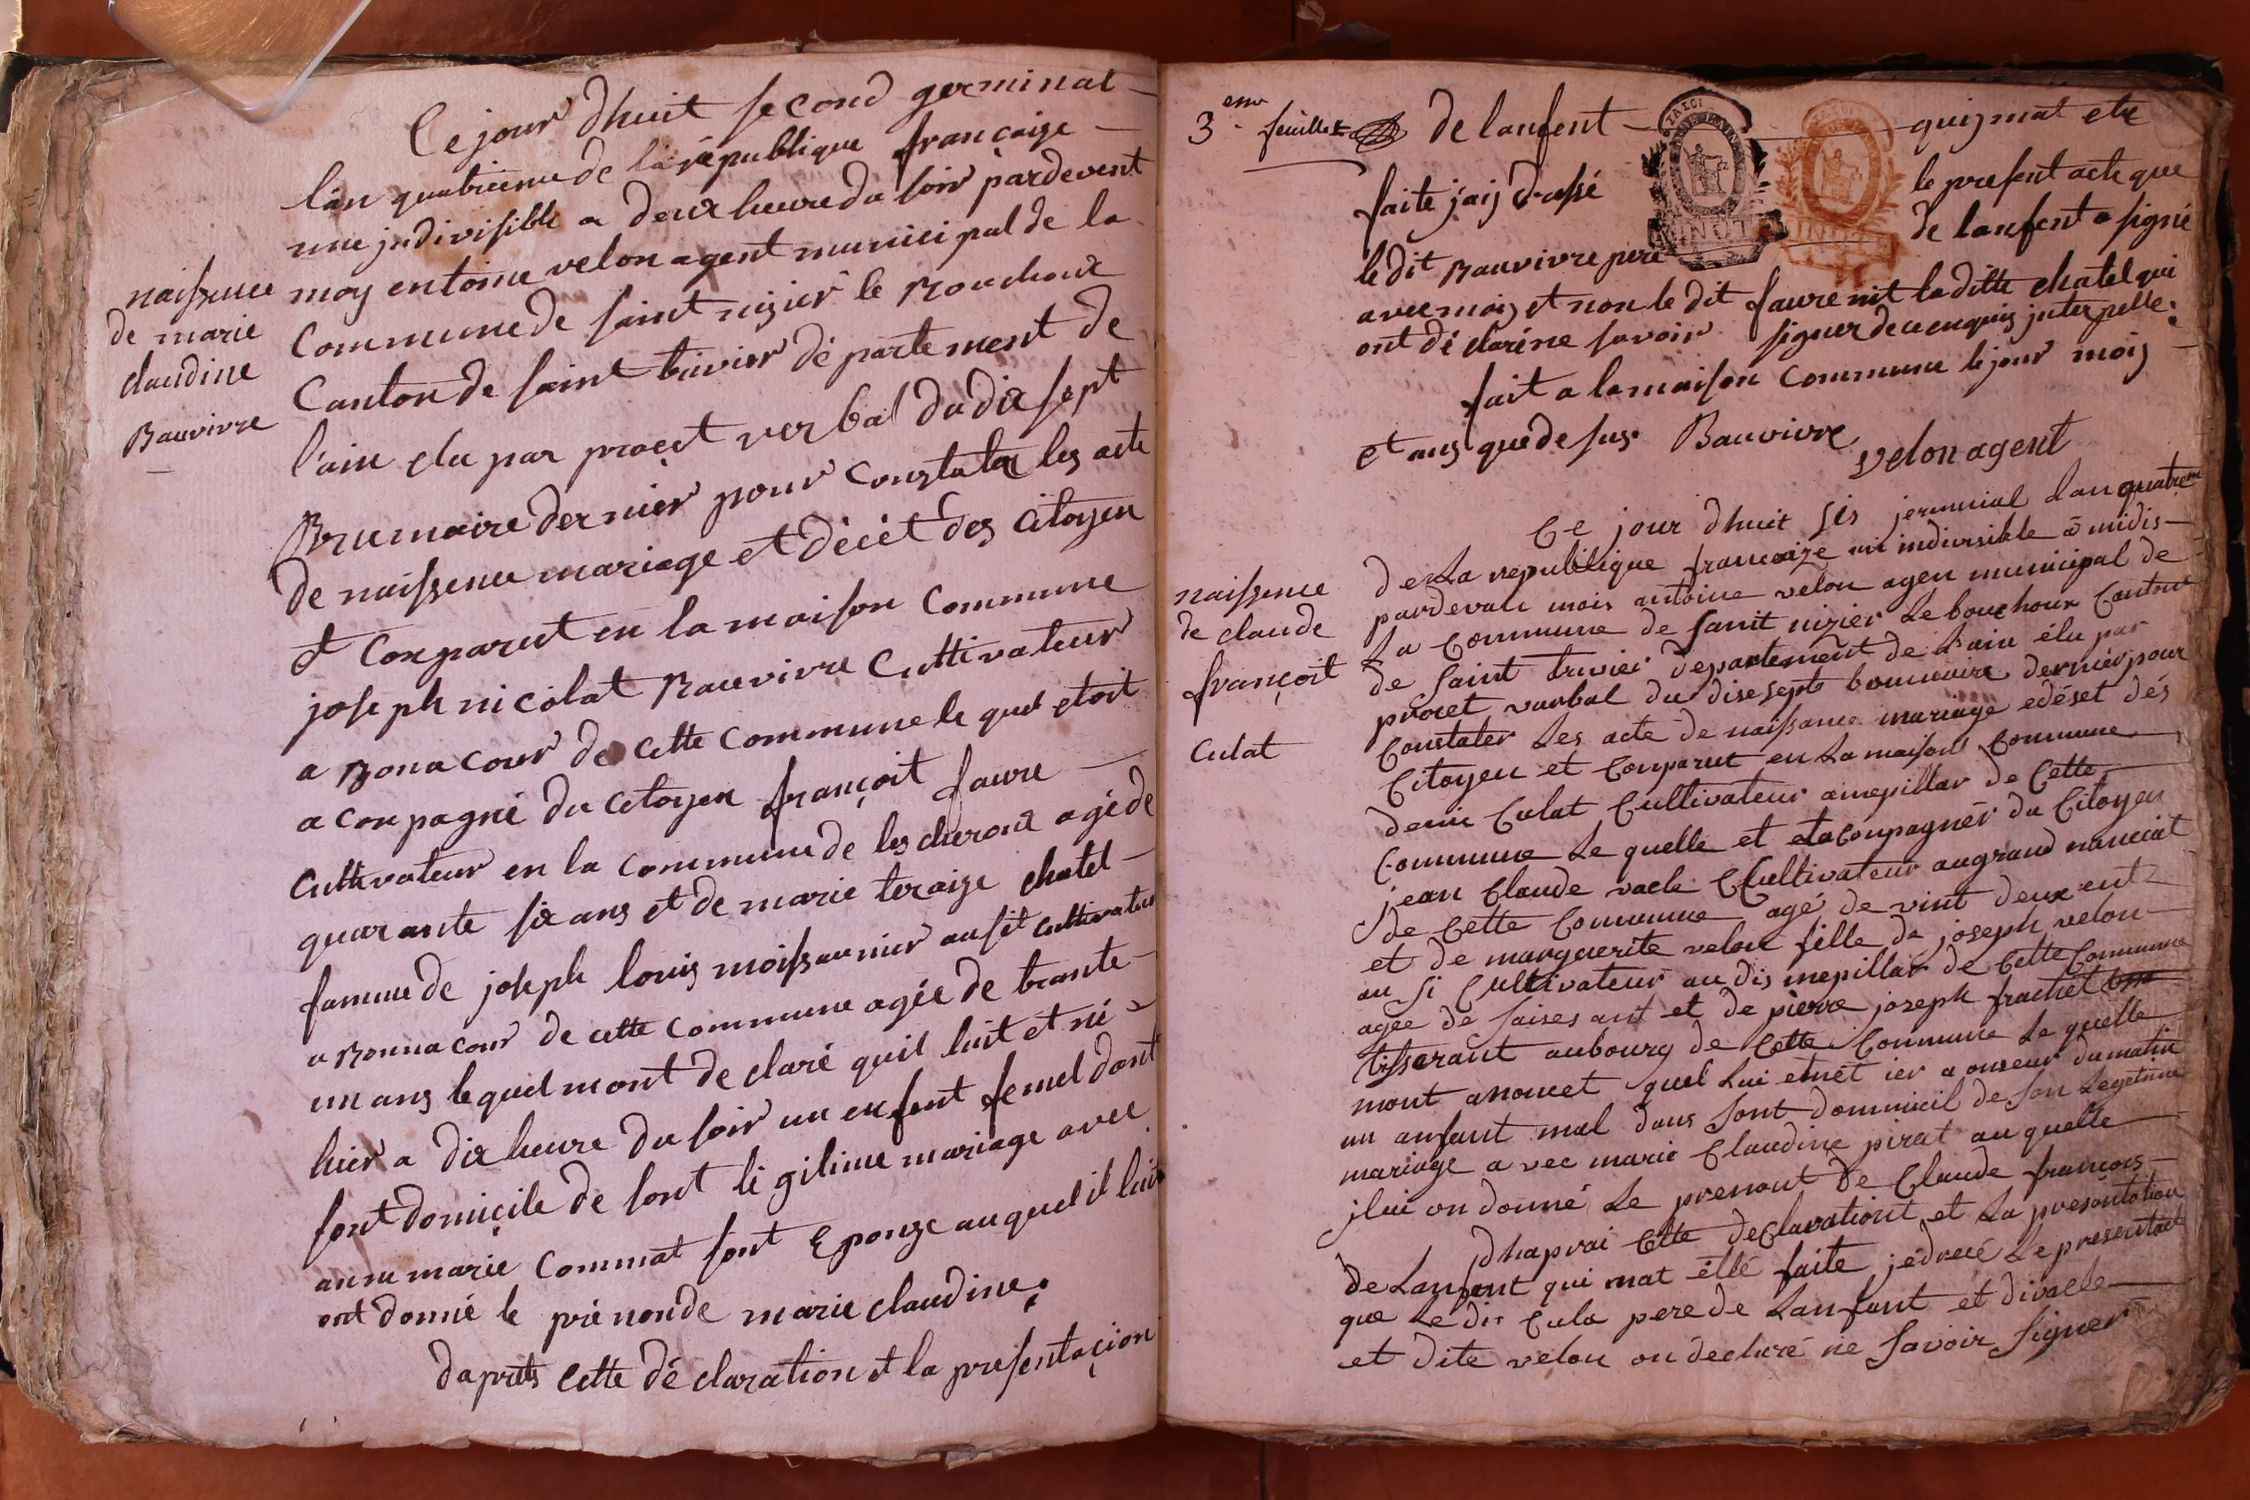 Ce jour dhuit second germinal
lan quatrieme de la republique françaize
une jndivisible a deux heure du soir pardevent
moy entoine velon agent municipal de la
commune de saint nizier le Bouchoux
Canton de saint trivier dé partement de
l'ain elu par procet verbal du dix sept
Brumaire dernier pour constater les acte
de naissence mariage et décét des citoyen
et Conparut en la maison commune
joseph nicolat Bauvivre Cultivateur
a Bonacour de cette commune le quel etoit
a conpagné du citoyen françoit faure
cultivateur en la commune de les cheroux agé de
quarante six ans et de marie teraize chatel
famme de joseph louis moissaunier ausit cultivateur
a Bonnacour de cette commune agée de trante
un ans le quel mont de claré quil luit et né
hier a dix heure du soir un enfent femel dont
sont domicile de sont ligitime mariage avec
anne marie Commat sont Eponze auquel il luit
ont donné le prénon de marie claudine.
daprets cette dé claration et la presentaçion
naissence
de marie
claudine
Bauvivre
3eme feuillet
de lanfent quij mat ete
faite jaij drassé le present acte que
le dit Bauvivre pere de lanfent a signé
avec moij et non le dit faure nit la ditte chatel qui
ont dé claré ne savoir signer de ce enquis jnterpellé.
fait a la maison commune le jour mois
et ans que de sus. Bauvivre
velon agent
Ce jour dhuit sis jerminial lan quatrieme
de La republique francaize un indivisible à midis
pardevan mois antoine velon agen municipal de
La Commune de sanit nizier Le bouchoux Canton
de saint trivier departement de Lain élu par
procet varbal du disesept brumaire dernier pour
Constater Les acte de naissance mariage edéset dés
Citoyen et Conparut en La maison Commune
denis Culat Cultivateur amepillar de Cette
Commune Le quelle et etaconpagnér du Citoyen
jean Claude vacle Cultivateur augrand manciat
de Cette Commune agé de vint deux ent
et de marguerite velon fille de joseph velon
au si Cultivateur au dis mepillar de Cette Commune
agée de saises ant et de pierre joseph frachet
tisserant aubourg de Cette Commune Le quelle
mont anoncet quel Lui etnét ier a onseur dumatin
un anfant mal dans sont dommicil de son Legetime
mariage avec marie Claudine pirat au quelle
jlui on donné Le prenont de Claude francois
dhaprai Cette declarationt et La presantation
de Lanfent qui mat étté faite jédrecé Le present act
que Ledit Cula pere de Lanfant et divacle
et dite velon on declaré ne savoir signer
naissence
de claude
françoit
Culat